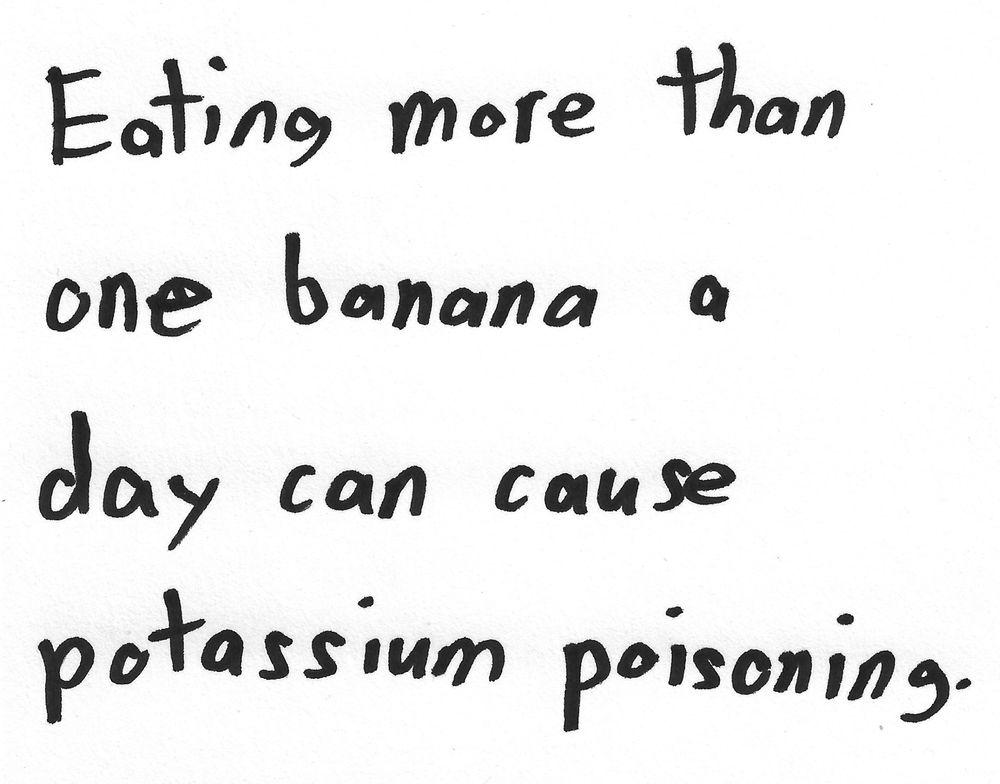 Eating more than
one banana a
day can cause
potassium poisoning.